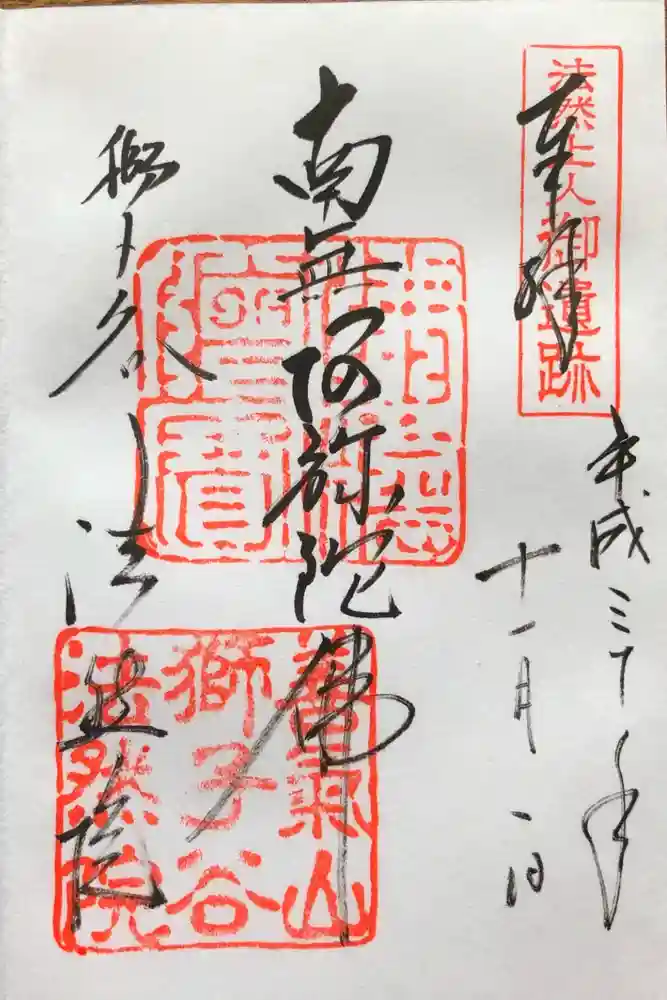 法然上人御遺跡
奉拝
平成三十年
十一月一日
南無阿弥陀佛
獅子谷
法然院
善氣山
獅子谷
法然院